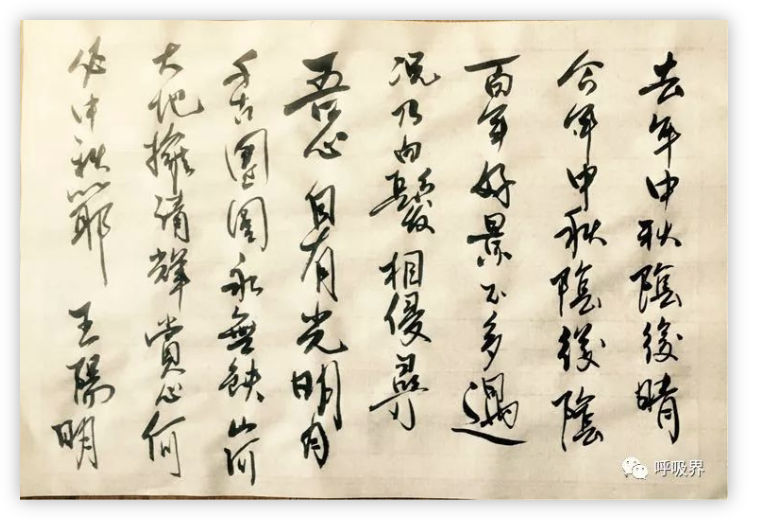 去年中秋陰復晴
今年中秋陰復陰
百年好景不多遇
況乃白髮相侵尋
吾心自有光明月
千古團圓永無缺山河
大地擁清輝賞心何
必中秋節 王陽明
呼吸界